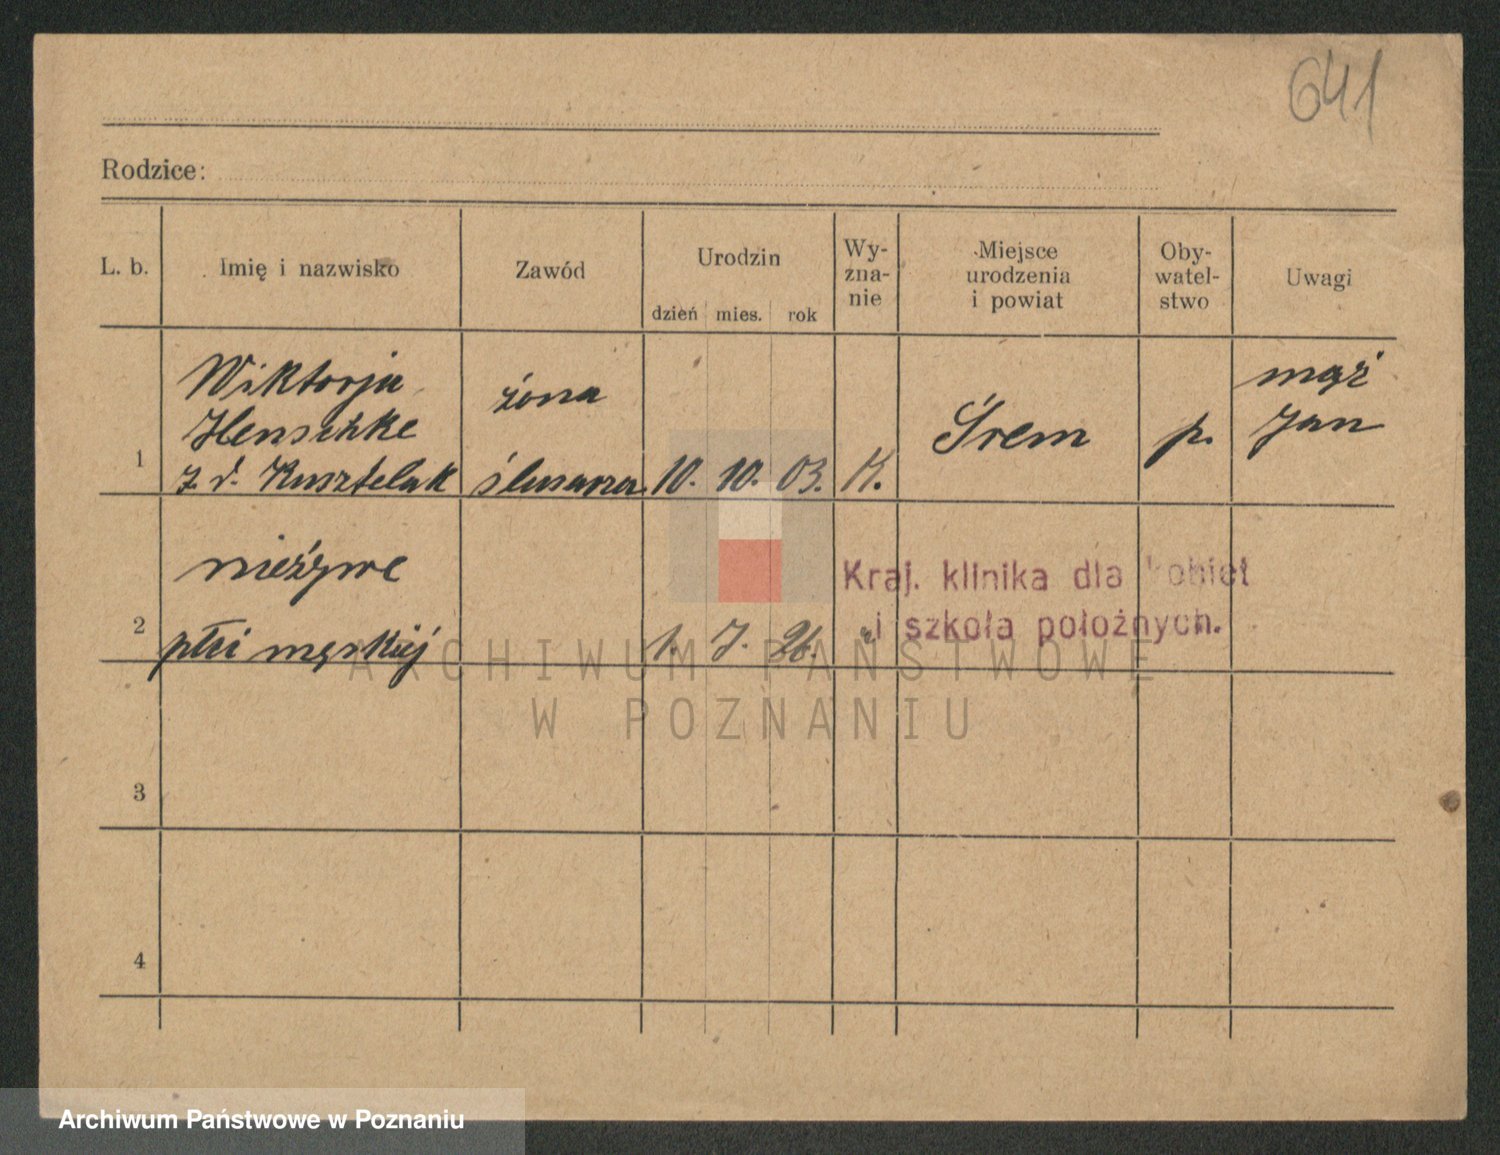 641
Rodzice:
L. b. Imię i nazwisko Zawód Urodzin dzień mies. rok Wy-zna-nie Miejsce urodzenia i powiat Oby-watel-stwo Uwagi
Wiktorja żona mąż
Henschke Śrem p. Jan
1 z d. Kusztelak ślusarza 10. 10. 03. K.
nieżywe
Kraj. klinika dla kobiet
2 płci męskiej 1. 7. 26. i szkoła położnych.
ARCHIWUM PAŃSTWOWE
W POZNANIU
3
4
Archiwum Państwowe w Poznaniu